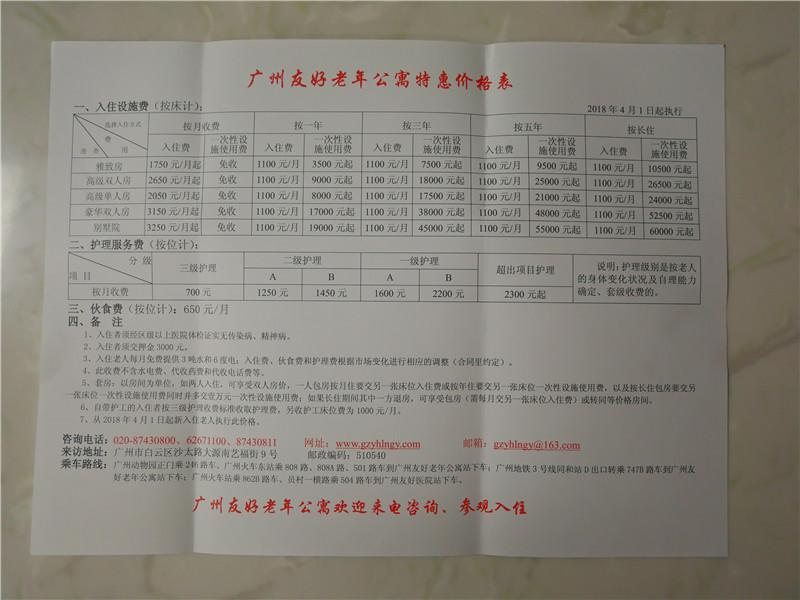 广州友好老年公寓特惠价格表
一、入住设施费（按床计）： 2018 年 4 月 1 日起执行
选择入住方式 按月收费 按一年 按三年 按五年 按长住
费 用 类 入住费 一次性设施使用费 入住费 一次性设施使用费 入住费 一次性设施使用费 入住费 一次性设施使用费 入住费 一次性设施使用费
雅致房 1750 元/月起 免收 1100 元/月 3500 元起 1100 元/月 7500 元起 1100 元/月 9500 元起 1100 元/月 10500 元起
高级双人房 2650 元/月起 免收 1100 元/月 9000 元起 1100 元/月 18000 元起 1100 元/月 25000 元起 1100 元/月 26500 元起
高级单人房 2050 元/月起 免收 1100 元/月 8000 元起 1100 元/月 17500 元起 1100 元/月 21000 元起 1100 元/月 24000 元起
豪华双人房 3150 元/月起 免收 1100 元/月 17000 元起 1100 元/月 38000 元起 1100 元/月 48000 元起 1100 元/月 52500 元起
别墅院 3250 元/月起 免收 1100 元/月 19000 元起 1100 元/月 45000 元起 1100 元/月 55000 元起 1100 元/月 60000 元起
二、护理服务费（按位计）：
分 级 项 目 三级护理 二级护理 一级护理 超出项目护理 说明：护理级别是按老人
A B A B 的身体变化状况及自理能力
按月收费 700 元 1250 元 1450 元 1600 元 2200 元 2300 元起 确定、套级收费的。
三、伙食费（按位计）：650 元/月
四、备 注
1、入住者须经区级以上医院体检证实无传染病、精神病。
2、入住者须交押金 3000 元。
3、入住老人每月免费提供 3 吨水和 6 度电；入住费、伙食费和护理费根据市场变化进行相应的调整（合同里约定）。
4、此收费不含水电费、代收药费和代收电话费等。
5、套房：以房间为单位，如两人入住，可享受双人房价，一人包房按月住要交另一张床位入住费或按年住要交另一张床位一次性设施使用费，以及按长住包房要交另
一张床位一次性设施使用费同时并多交壹万元一次性设施使用费；如果长住期间其中一方退房，可享受包房（需每月交另一张床位入住费）或转同等价格房间。
6、自带护工的入住者按三级护理收费标准收取护理费，另收护工床位费为 1000 元/月。
7、从 2018 年 4 月 1 日起新入住老人执行此价格。
咨询电话：020-87430800、62671100、87430811 网址：www.gzyhlngy.com 邮箱：gzyhlngy@163.com
来访地址：广州市白云区沙太路大源南艺福街 9 号 邮政编码：510540
乘车路线：广州动物园正门乘 246 路车、广州火车东站乘 808 路、808A 路、501 路车到广州友好老年公寓站下车；广州地铁 3 号线同和站 D 出口转乘 747B 路车到广州友
好老年公寓站下车；广州火车站乘 862B 路车、员村一横路乘 504 路车到广州友好医院站下车。
广州友好老年公寓欢迎来电咨询、参观入住